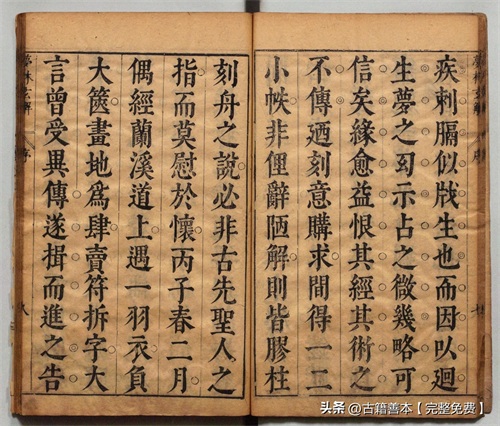 疾刺膈似戕生也而因以迴
生夢之幻示占之微幾略可
信矣緣愈益恨其經其術之
不傳廼刻意購求間得一二
小帙非俚辭陋解則皆膠柱
刻舟之說必非古先聖人之
指而莫慰於懷丙子春二月
偶經蘭溪道上遇一羽衣負
大篋畫地爲肆賣符拆字大
言曾受異傳遂揖而進之告
夢林玄解 序
头条 @古籍善本【完整免费】